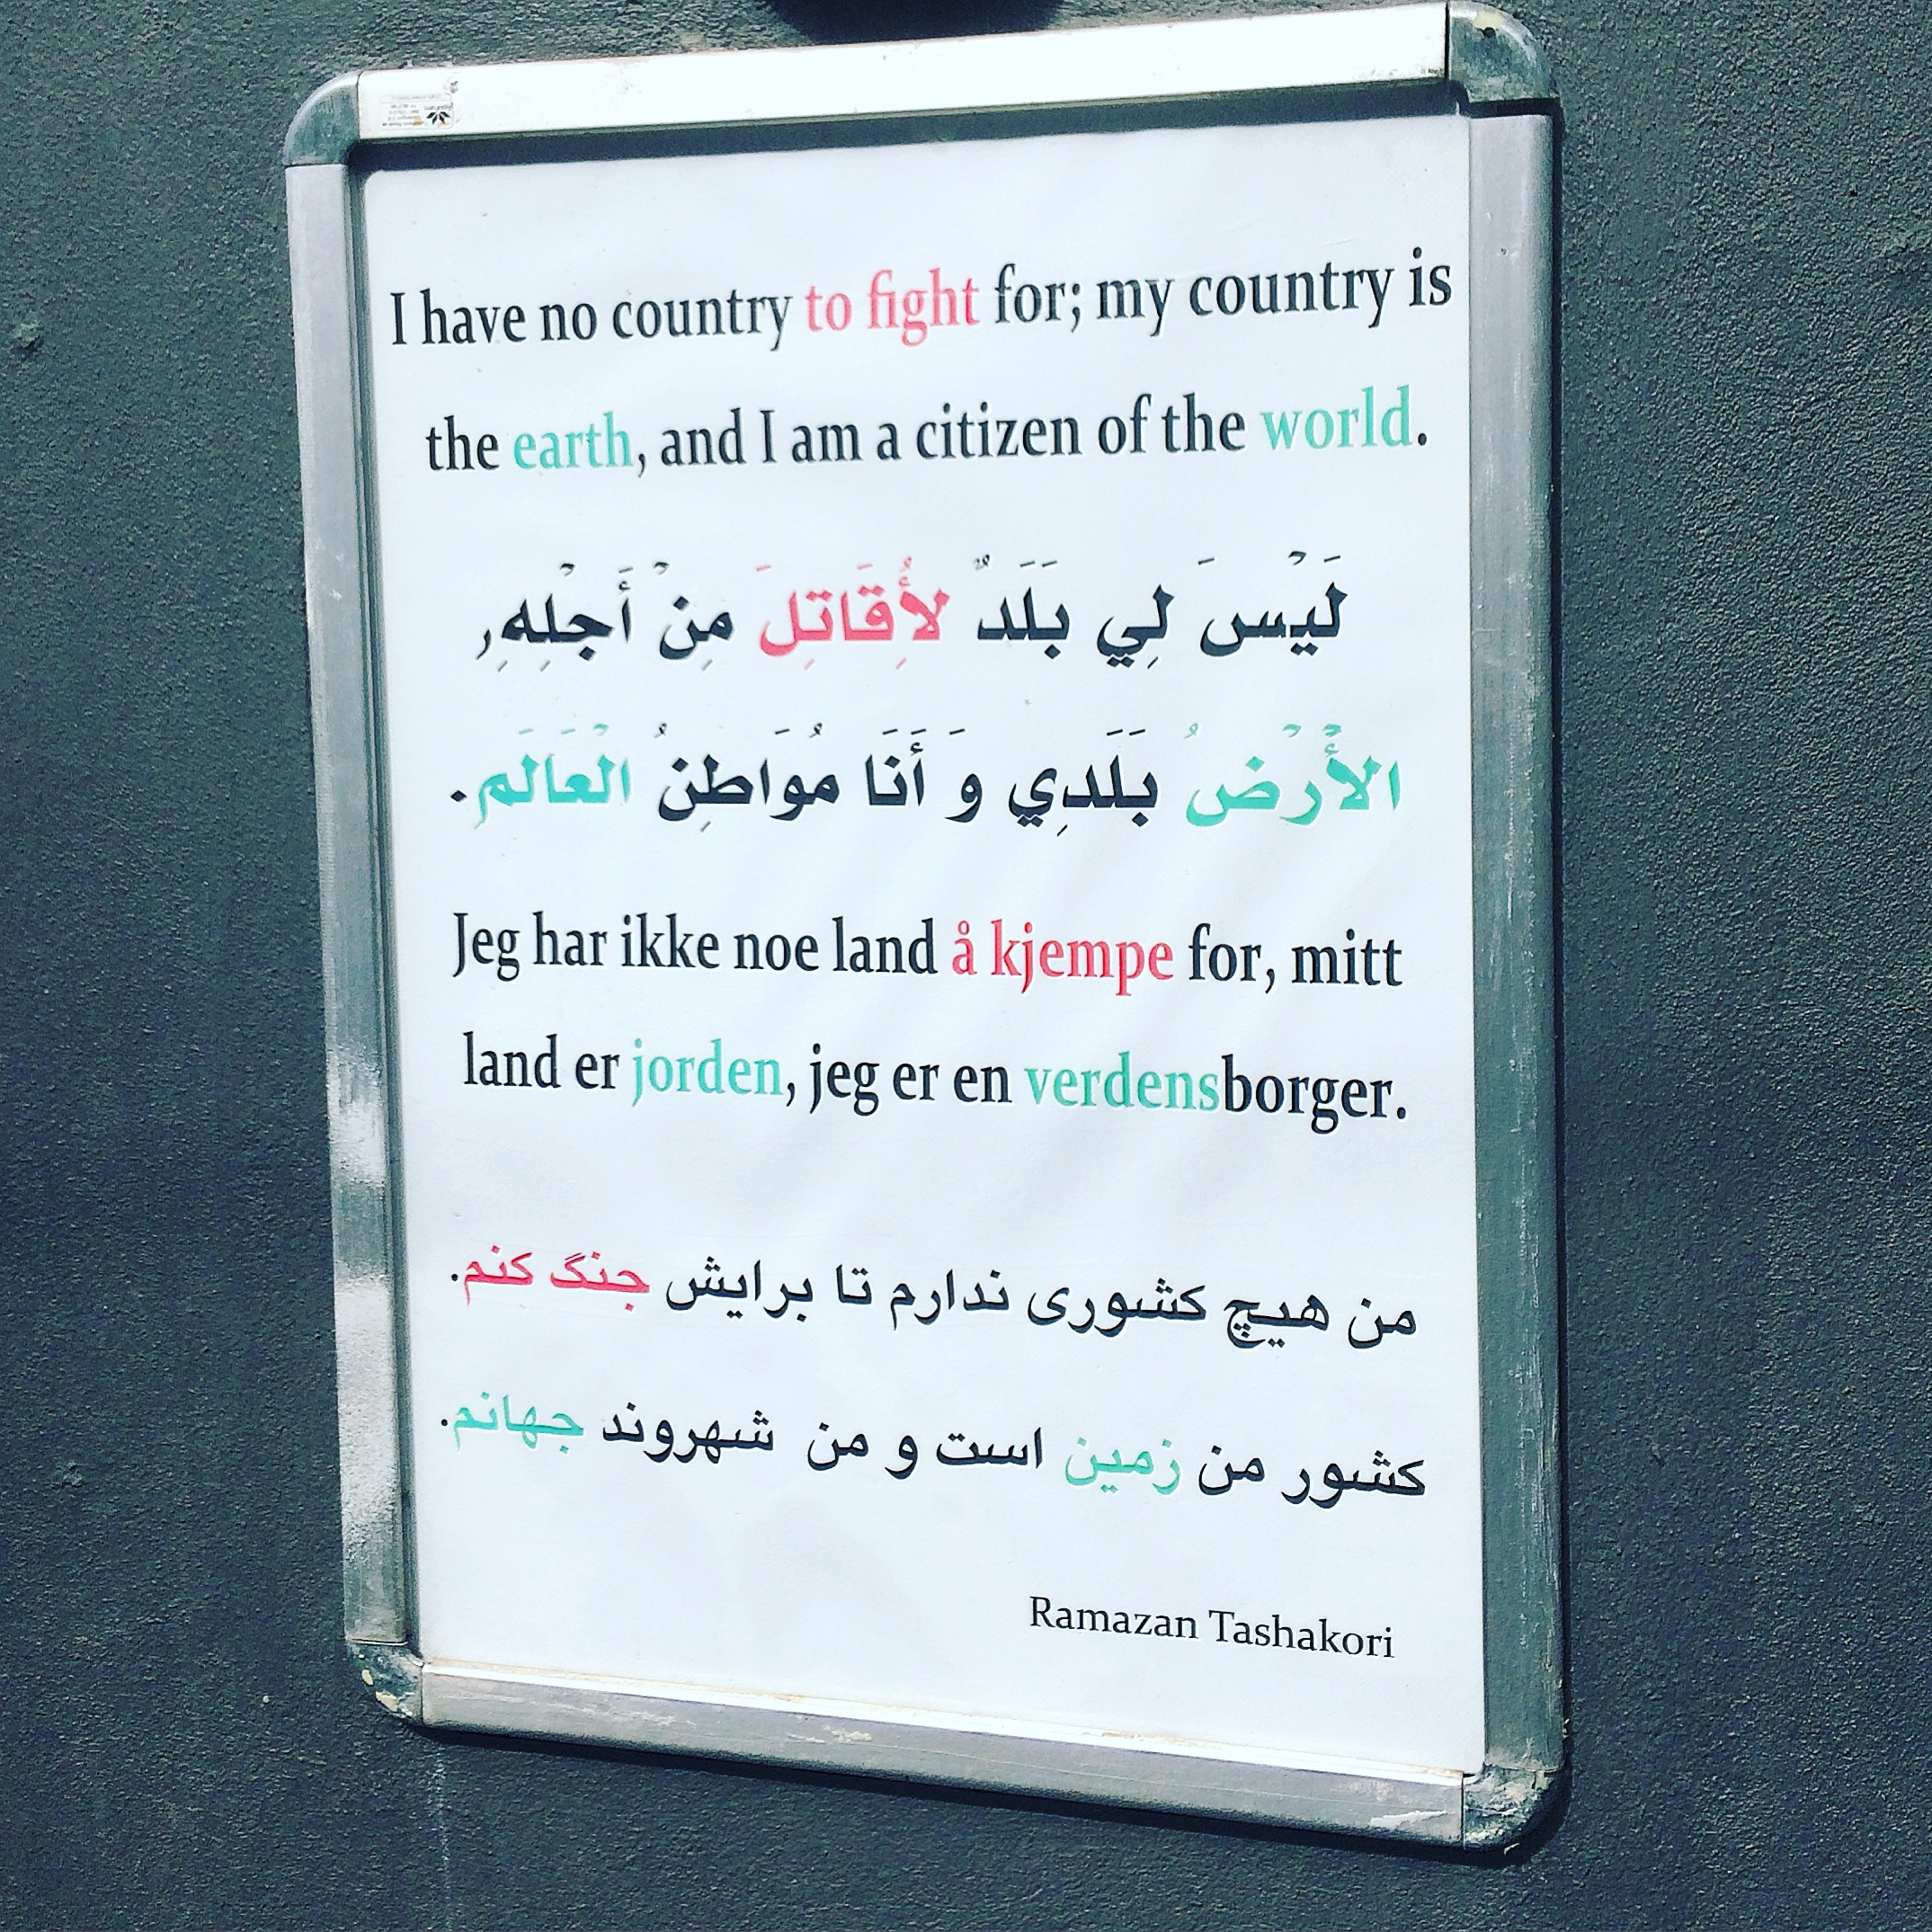 I have no country to fight for; my country is
the earth, and I am a citizen of the world.
لَيْسَ لِي بَلَدٌ لأُقَاتِلَ مِنْ أَجْلِهِ,
الأَرْضُ بَلَدِي وَ أَنَا مُوَاطِنُ الْعَالَمِ.
Jeg har ikke noe land å kjempe for, mitt
land er jorden, jeg er en verdensborger.
من هیچ کشوری ندارم تا برایش جنگ کنم.
کشور من زمین است و من شهروند جهانم.
Ramazan Tashakori